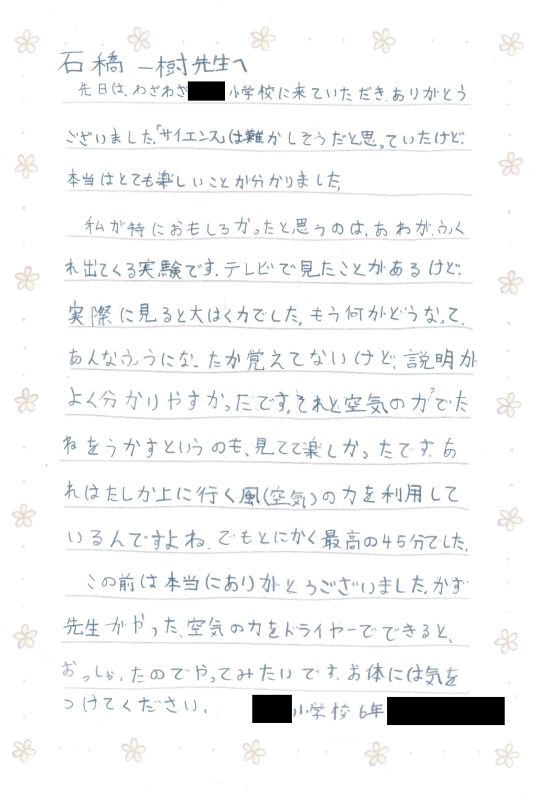 石橋一樹先生へ
先日は、わざわざ小学校に来ていただき、ありがとう
ございました。「サイエンス」は難かしそうだと思っていたけど、
本当はとても楽しいことが分かりました。
私が特におもしろかったと思うのは、あわが、ふく
れ出てくる実験です。テレビで見たことがあるけど、
実際に見ると大はく力でした。もう何がどうなって、
あんなふうになったか覚えてないけど、説明が
よく分かりやすかったです。それと空気の力?でた
ねをうかすというのも、見てて楽しかったです。あ
れはたしか上に行く風(空気)の力を利用して
いるんですよね。でもとにかく最高の45分でした。
この前は本当にありがとうございました。かず
先生がやった、空気の力をドライヤーでできると、
おっしゃったのでやってみたいです。お体には気を
つけてください。
小学校6年